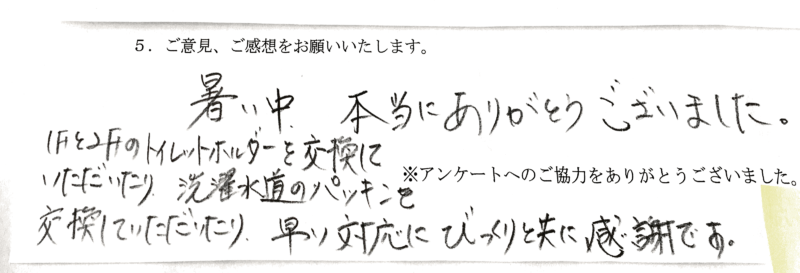 5．ご意見、ご感想をお願いいたします。
暑い中、本当にありがとうございました。
1Fと2Fのトイレットホルダーを交換して
いただいたり、洗濯水道のパッキンを
※アンケートへのご協力をありがとうございました。
交換していただいたり、早い対応にびっくりと共に感謝です。